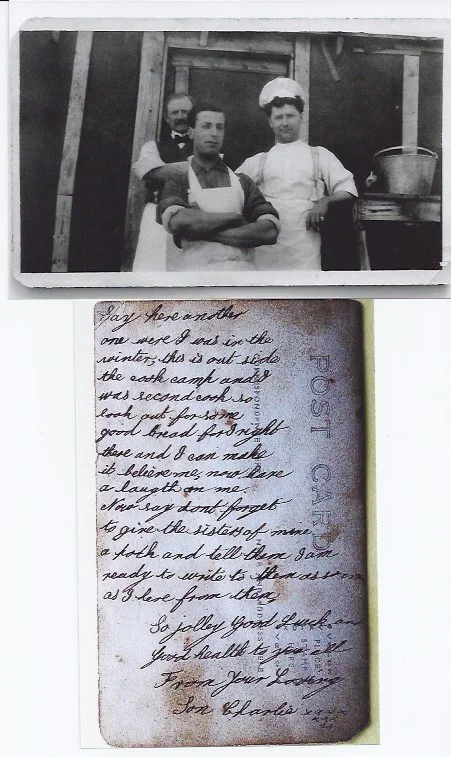 Say here another
one were I was in the
winter, this is out side
the cook camp and I
was second cook so
look out for some
good bread for right
there and I can make
it believe me, now have
a laugth on me.
Now say dont forget
to give the sisters of mine
a and tell them I am
ready to write to them as soon
as I here from them,
So jolley Good Luck and
Good health to you all
From Your Loving
Son Charlie xxxx
POST CARD